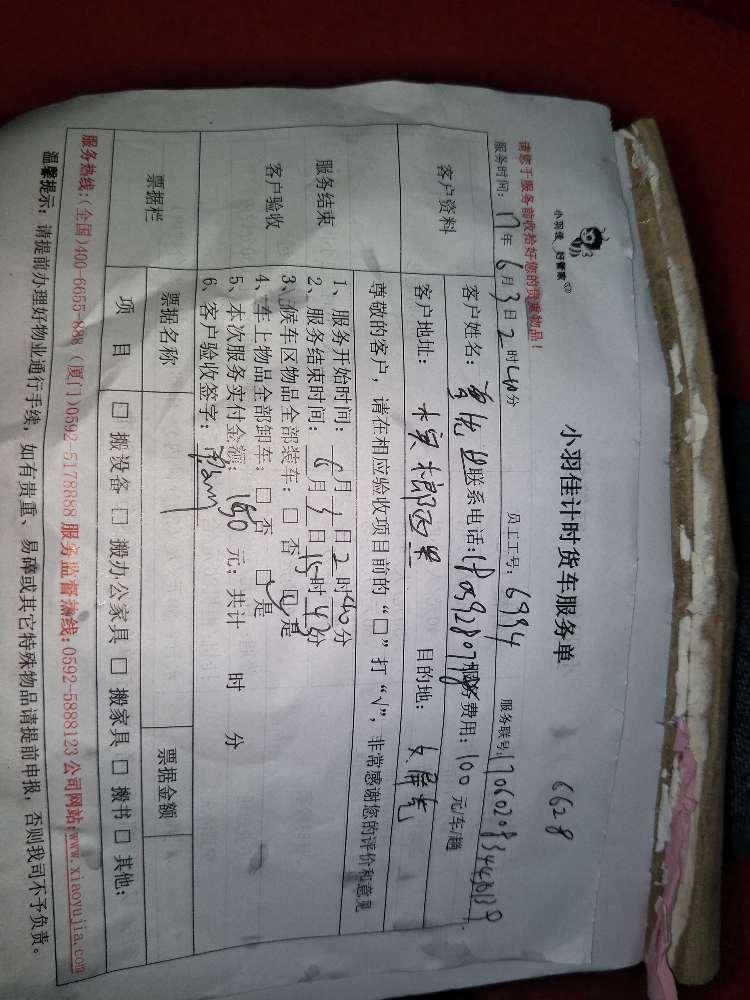 小羽佳 好管家
小羽佳计时货车服务单
6628
请您于服务前收拾好您的贵重物品!
服务时间: 17年 6月 3日 2时40分 员工工号: 6994 服务联号:
客户资料
客户姓名: 联系电话: 服务费用: 100 元/车/趟
客户地址: 目的地:
服务结束
客户验收
尊敬的客户,请在相应验收项目前的“□”打“√”,非常感谢您的评价和意见
1、服务开始时间: 6月 3日 2时40分
2、服务结束时间: 6月 3日 15时43分
3、候车区物品全部装车: □ 否 □是
4、车上物品全部卸车: □ 否 □是
5、本次服务实付金额: 元; 共计 时 分
6、客户验收签字:
票据栏
票据名称 票据金额
项 目 □ 搬设备 □ 搬办公家具 □ 搬家具 □ 搬书 □ 其他:
服务热线:(全国)400-6655-888 (厦门)0592-5178888 服务监督热线:0592-5888123 公司网站:www.xiaoyujia.com
温馨提示: 请提前办理好物业通行手续; 如有贵重、易碎或其它特殊物品请提前申报, 否则我司不予负责。